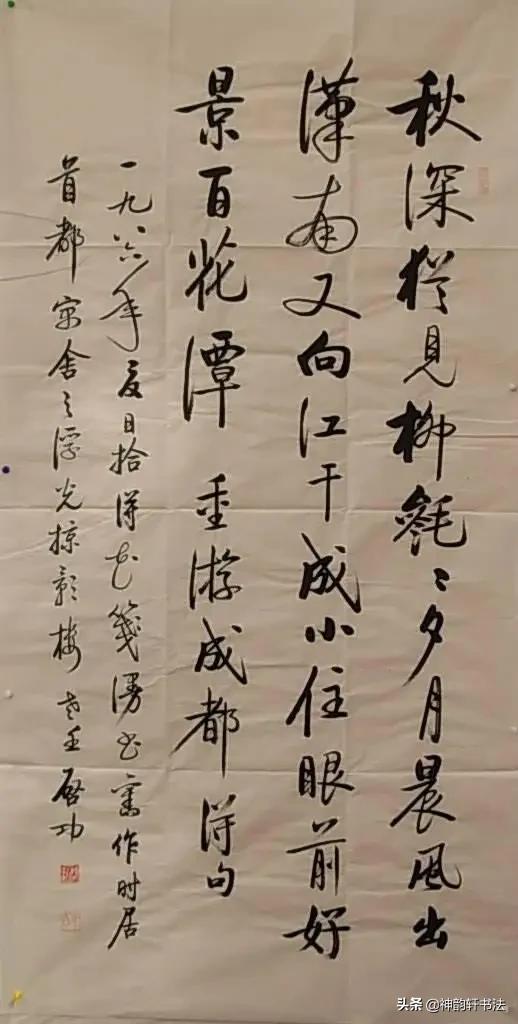 秋深猶見柳毿〻夕月晨風出
漢南又向江干成小住眼前好
景百花潭 重游成都得句
一九八六年夏日拾得花箋漫書舊作时居
首都寓舍之浮光掠影樓 啟功
头条 @神韵轩书法